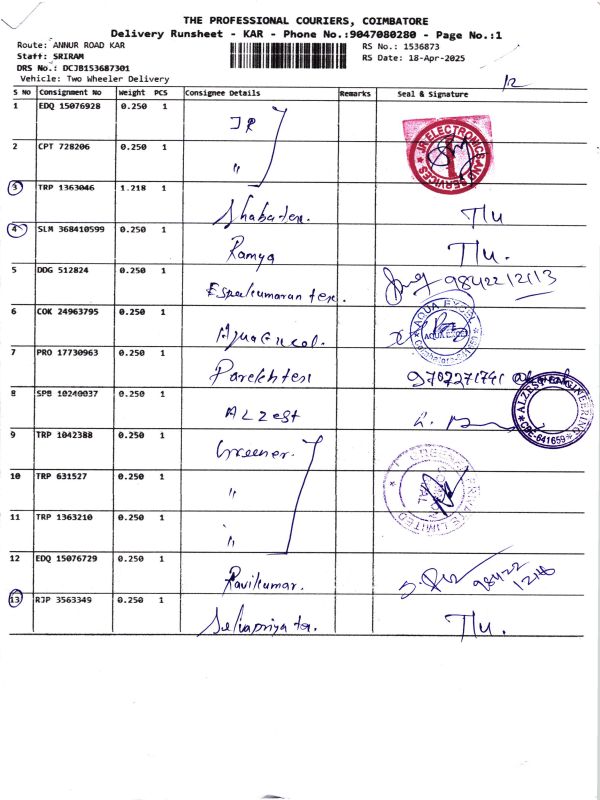 THE PROFESSIONAL COURIERS, COIMBATORE
Delivery Runsheet - KAR - Phone No.:9047080280 - Page No.:1
Route: ANNUR ROAD KAR RS No.: 1536873
Staff: SRIRAM RS Date: 18-Apr-2025
DRS No.: DCJB153687301
Vehicle: Two Wheeler Delivery
S No Consignment No Weight PCS Consignee Details Remarks Seal & Signature
1 EDQ 15076928 0.250 1 JR
JR ELECTRONICS AND SERVICES
2 CPT 728206 0.250 1 "
3 TRP 1363046 1.218 1 Shabatex. T/u
4 SLM 368410599 0.250 1 Ramya T/u.
5 DDG 512824 0.250 1
6 COK 24963795 0.250 1
AQUA EXCEL
7 PRO 17730963 0.250 1
8 SPB 10240037 0.250 1 ALZEST
ALZEST ENGINEERING CBE-641659
9 TRP 1042388 0.250 1 Greener.
10 TRP 631527 0.250 1 "
11 TRP 1363210 0.250 1 "
12 EDQ 15076729 0.250 1 Ravikumar.
13 RJP 3563349 0.250 1 T/u.